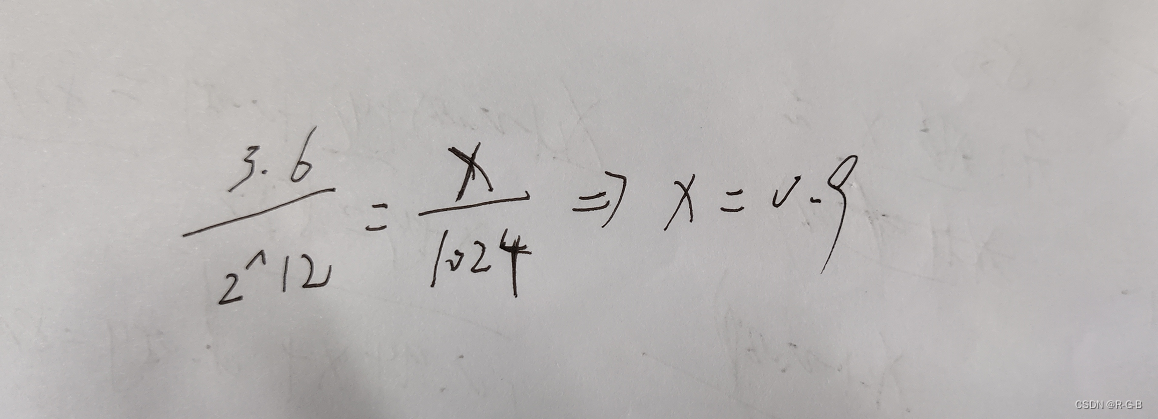 3.6/2^12 = X/1024 => X = 0.9
CSDN @R-G-B